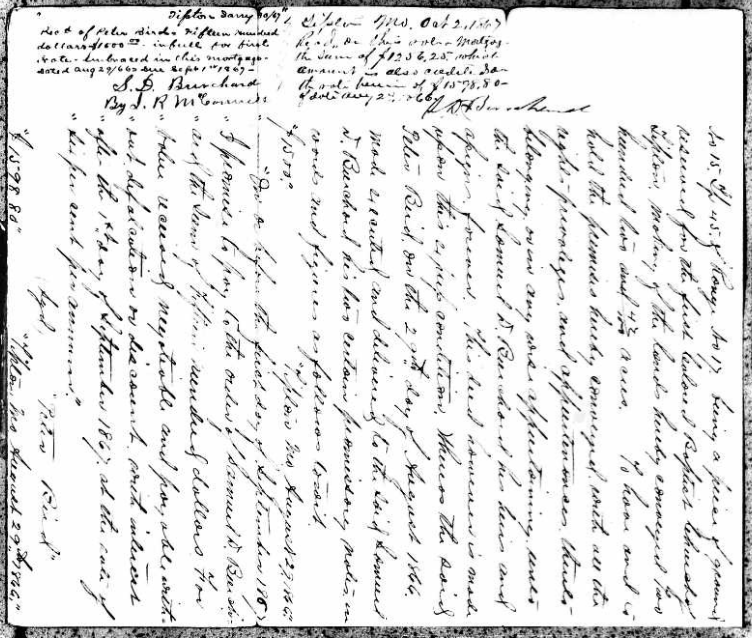 Tipton
Recd of Peter Bird Fifteen Hundred
dollars $1500 in full for first
note Embraced in this mortgage
dated Aug 29/66 Due Sept 1st 1867
S. D. Burchard
By J. R. McConnell
Tipton Mo. Oct 2, 1867
Recd on this
the sum of $1256.25 which
amount is also
the note of $1598.80
No 15 Tp 45 of Range No 17 being a piece of ground
reserved for the first Colored Baptist Church of
Tipton, making of the lands hereby conveyed two
hundred two and acres. To have and to
hold the premises hereby conveyed, with all the
rights, privileges, and appurtenances, thereto
belonging, or in any wise appertaining, unto
the said Samuel D. Burchard his heirs and
assigns forever. This deed however is made
upon this express condition. Whereas the said
Peter Bird, on the 29th day of August 1866,
made executed and delivered to the said Samuel
D. Burchard his two certain promissory notes, in
words and figures as follows to wit.
"$1500" "Tipton Mo August 29, 1866"
"On or before the first day of September 1867
I promise to pay to the order of Samuel D. Burch-
ard the sum of fifteen hundred dollars. For
value received negotiable and payable with-
out defalcation or discount with interest
after the 1st day of September 1867, at the rate of
six per cent per annum"
Peter Bird"
"$1598.80" "Tipton Mo August 29th 1866"